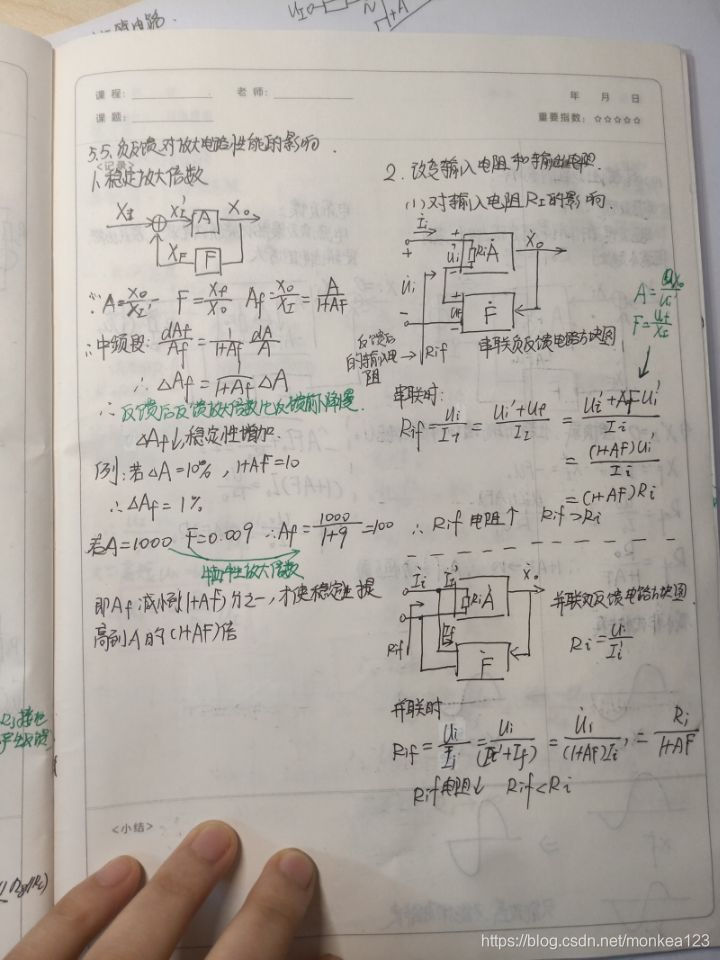 课程:
老师:
课题:
年 月 日
重要指数: ☆☆☆☆☆
5.5. 负反馈对放大电路性能的影响.
<记录>
1、稳定放大倍数
XI XI' A Xo
XF F
∵A=Xo/XI' F=Xf/Xo Af=Xo/XI=A/(1+AF)
∴中频段: dAf/Af=1/(1+AF) dA/A
∴ΔAf=1/(1+AF) ΔA
∴反馈后反馈放大倍数比反馈前降慢.
ΔAf↓,稳定性增加.
例:若ΔA=10%, 1+AF=10
∴ΔAf=1%
若A=1000 F=0.009 ∴Af=1000/(1+9)=100
牺牲放大倍数
即Af减小到(1+AF)分之一,才使稳定性提
高到A的(1+AF)倍
2. 改变输入电阻和输出电阻.
(1)对输入电阻RI的影响.
Ii Ui' Ri A Xo
Ui
Uf F
反馈后
的输入电
阻
Rif
串联负反馈电路方块图
F=Uf/XI
串联时:
Rif=Ui/II=(Ui'+Uf)/II=(Ui'+AFUi')/Ii
=(1+AF)Ui'/Ii
=(1+AF)Ri
∴Rif电阻↑ Rif>Ri
Ii Ii' Ri A Xo
If
Rif F
并联负反馈电路方块图.
Ri=Ui/Ii'
并联时
Rif=Ui/Ii=Ui/(Ii'+If)=Ui/(1+AF)Ii'=Ri/(1+AF)
Rif电阻↓ Rif<Ri
<小结>
https://blog.csdn.net/monkea123